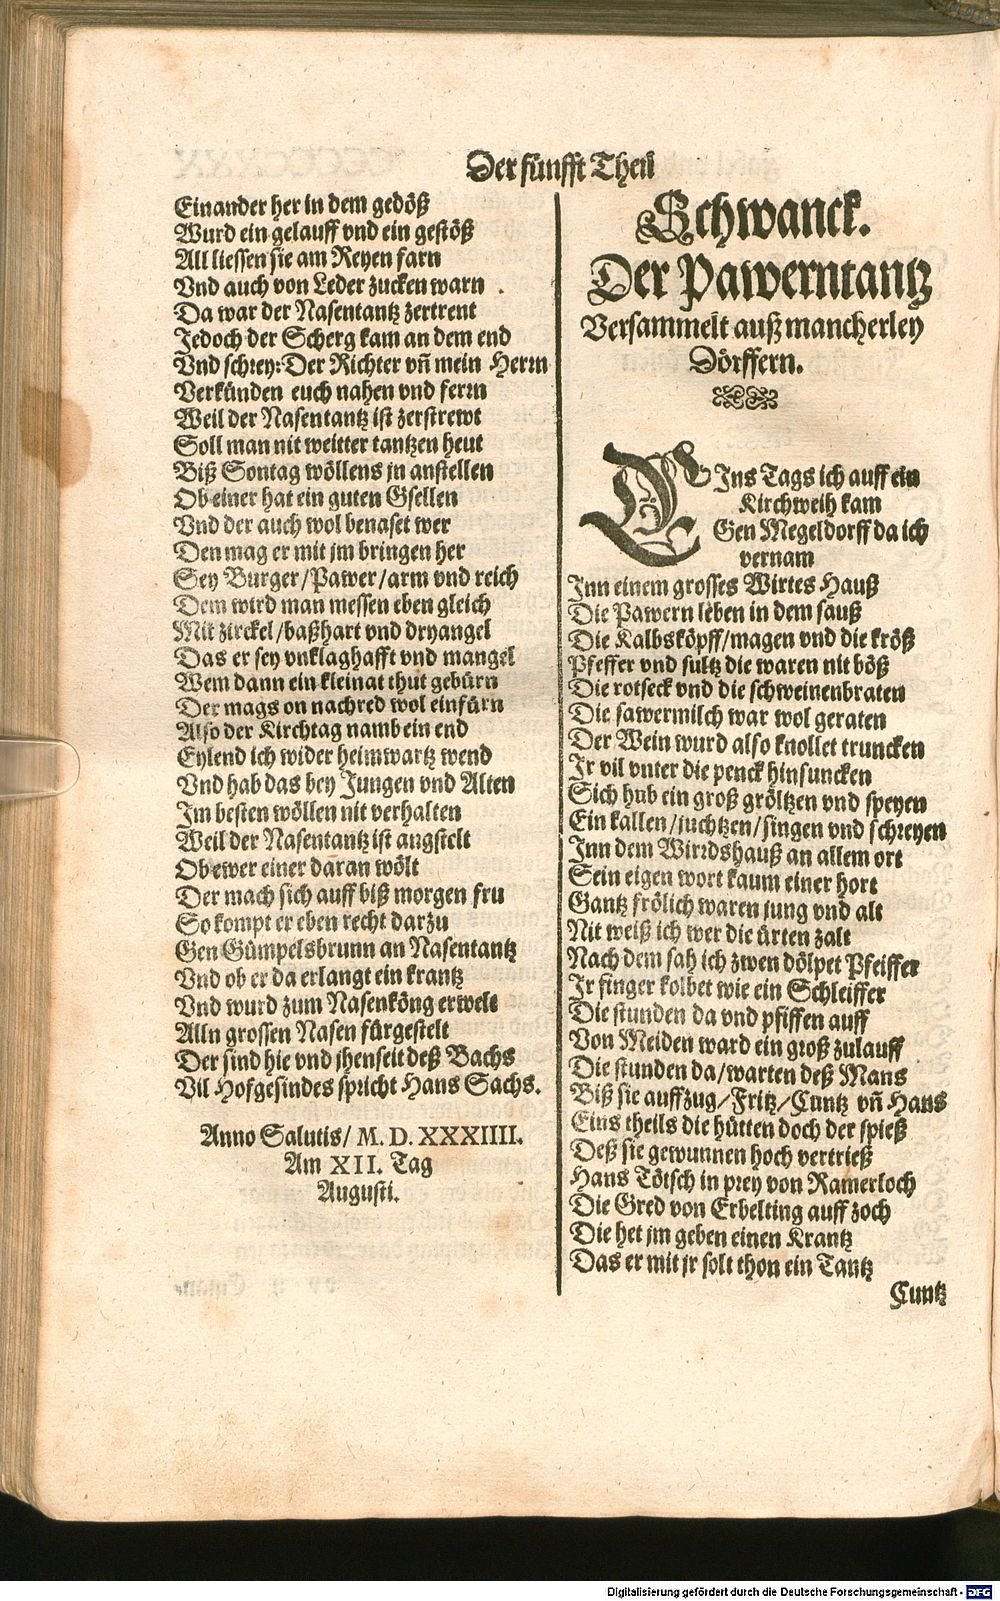 Der fünfft Theil
Einander her in dem gedöß
Wurd ein gelauff vnd ein gestöß
All liessen sie am Reyen farn
Vnd auch von Leder zucken warn
Da war der Nasentantz zertrent
Jedoch der Scherg kam an dem end
Vnd schrey: Der Richter vñ mein Herrn
Verkünden euch nahen vnd ferrn
Weil der Nasentantz ist zerstrewt
Soll man nit weitter tantzen heut
Biß Sontag wöllens jn anstellen
Ob einer hat ein guten Gsellen
Vnd der auch wol benaset wer
Den mag er mit jm bringen her
Sey Burger/Pawer/arm vnd reich
Dem wird man messen eben gleich
Mit zirckel/baßhart vnd dryangel
Das er sey vnklaghafft vnd mangel
Wem dann ein kleinat thut gebürn
Der mags on nachred wol einfürn
Also der Kirchtag namb ein end
Eylend ich wider heimwartz wend
Vnd hab das bey Jungen vnd Alten
Im besten wöllen nit verhalten
Weil der Nasentantz ist angstelt
Ob ewer einer daran wölt
Der mach sich auff biß morgen fru
So kompt er eben recht darzu
Gen Gümpelsbrunn an Nasentantz
Vnd ob er da erlangt ein krantz
Vnd wurd zum Nasenköng erwelt
Alln grossen Nasen fürgestelt
Der sind hie vnd jhenseit deß Bachs
Vil Hofgesindes spricht Hans Sachs.
Anno Salutis/ M. D. XXXIIII.
Am XII. Tag
Augusti.
Schwanck.
Der Pawerntantz
Versammelt auß mancherley
Dörffern.
EIns Tags ich auff ein
Kirchweih kam
Gen Megeldorff da ich
vernam
Inn einem grosses Wirtes Hauß
Die Pawern leben in dem sauß
Die Kalbsköpff/magen vnd die kröß
Pfeffer vnd sultz die waren nit böß
Die rotseck vnd die schweinenbraten
Die sawermilch war wol geraten
Der Wein wurd also knollet truncken
Ir vil vnter die penck hinsuncken
Sich hub ein groß gröltzen vnd speyen
Ein kallen/juchtzen/singen vnd schreyen
Inn dem Wirdshauß an allem ort
Sein eigen wort kaum einer hort
Gantz frölich waren jung vnd alt
Nit weiß ich wer die ürten zalt
Nach dem sah ich zwen dölpet Pfeiffer
Ir finger kolbet wie ein Schleiffer
Die stunden da vnd pfiffen auff
Von Meiden ward ein groß zulauff
Die stunden da/warten deß Mans
Biß sie auffzug/Fritz/Cuntz vñ Hans
Eins theils die hütten doch der spieß
Deß sie gewunnen hoch vertrieß
Hans Tötsch in prey von Ramerloch
Die Gred von Erbelting auff zoch
Die het jm geben einen Krantz
Das er mit jr solt thon ein Tantz
Cuntz
Digitalisierung gefördert durch die Deutsche Forschungsgemeinschaft - DFG